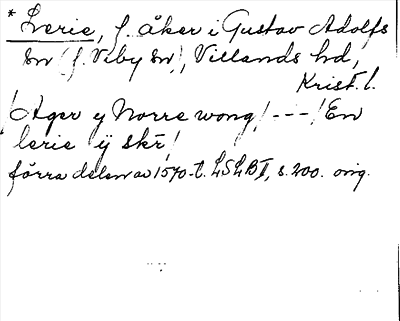 * Lerie, f. åker i Gustav Adolfs
sn (f. Viby sn), Villands hd,
Krist. l.
/Ager y Norre wong/ - - - /En
lerie ÿ skr/
förra delen av 1570-t. LSLB II, s. 200. orig.